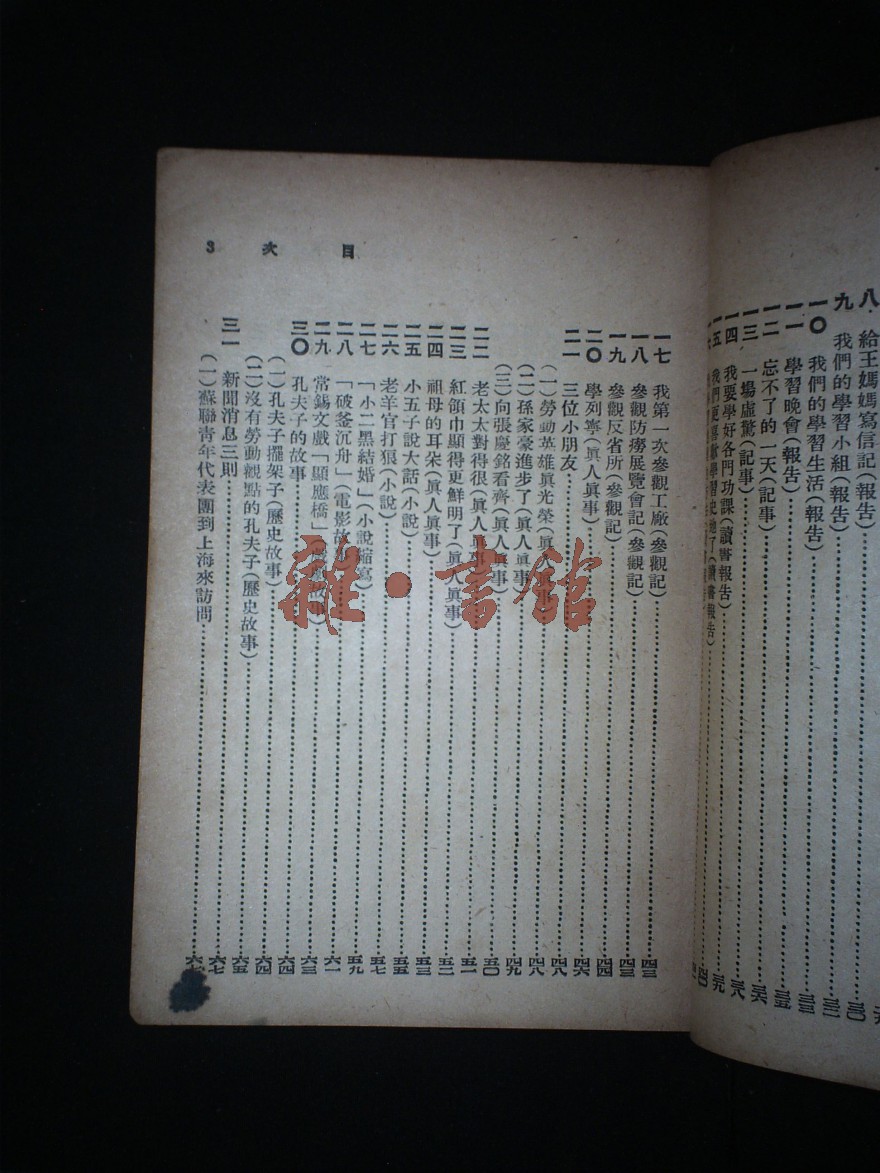 八 給王媽媽寫信記(報告)
九 我們的學習小組(報告) 三〇
一〇 我們的學習生活(報告) 三二
一一 學習晚會(報告) 三三
一二 忘不了的一天(記事) 三五
一三 一場虛驚(記事) 三六
一四 我要學好各門功課(讀書報告) 三八
一五 我們更喜歡學習史地了(讀書報告) 三九
目次 3
一七 我第一次參觀工廠(參觀記) 四三
一八 參觀防癆展覽會記(參觀記) 四三
一九 參觀反省所(參觀記) 四四
二〇 學列寧(眞人眞事) 四六
二一 三位小朋友 四八
(一)勞動英雄眞光榮(眞人眞事) 四八
(二)孫家豪進步了(眞人眞事) 四九
(三)向張慶銘看齊(眞人眞事) 五〇
二二 老太太對得很(眞人眞事) 五一
二三 紅領巾顯得更鮮明了(眞人眞事) 五二
二四 祖母的耳朵(眞人眞事) 五三
二五 小五子說大話(小說) 五五
二六 老羊官打狼(小說) 五七
二七 「小二黑結婚」(小說縮寫) 五九
二八 「破釜沉舟」(電影故事) 六一
二九 常錫文戲「顯應橋」 六三
三〇 孔夫子的故事 六四
(一)孔夫子擺架子(歷史故事) 六四
(二)沒有勞動觀點的孔夫子(歷史故事) 六五
三一 新聞消息三則 六七
(一)蘇聯青年代表團到上海來訪問 六七
雜·書館